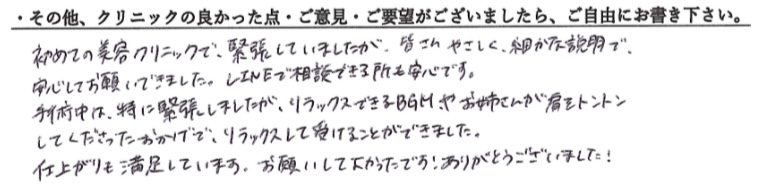 ・その他、クリニックの良かった点・ご意見・ご要望がございましたら、ご自由にお書き下さい。
初めての美容クリニックで、緊張していましたが、皆さんやさしく、細かな説明で、
安心してお願いできました。LINEで相談できる所も安心です。
手術中は、特に緊張しましたが、リラックスできるBGMやお姉さんが肩をトントン
してくださったおかげで、リラックスして受けることができました。
仕上がりも満足しています。お願いしてよかったです！ありがとうございました！